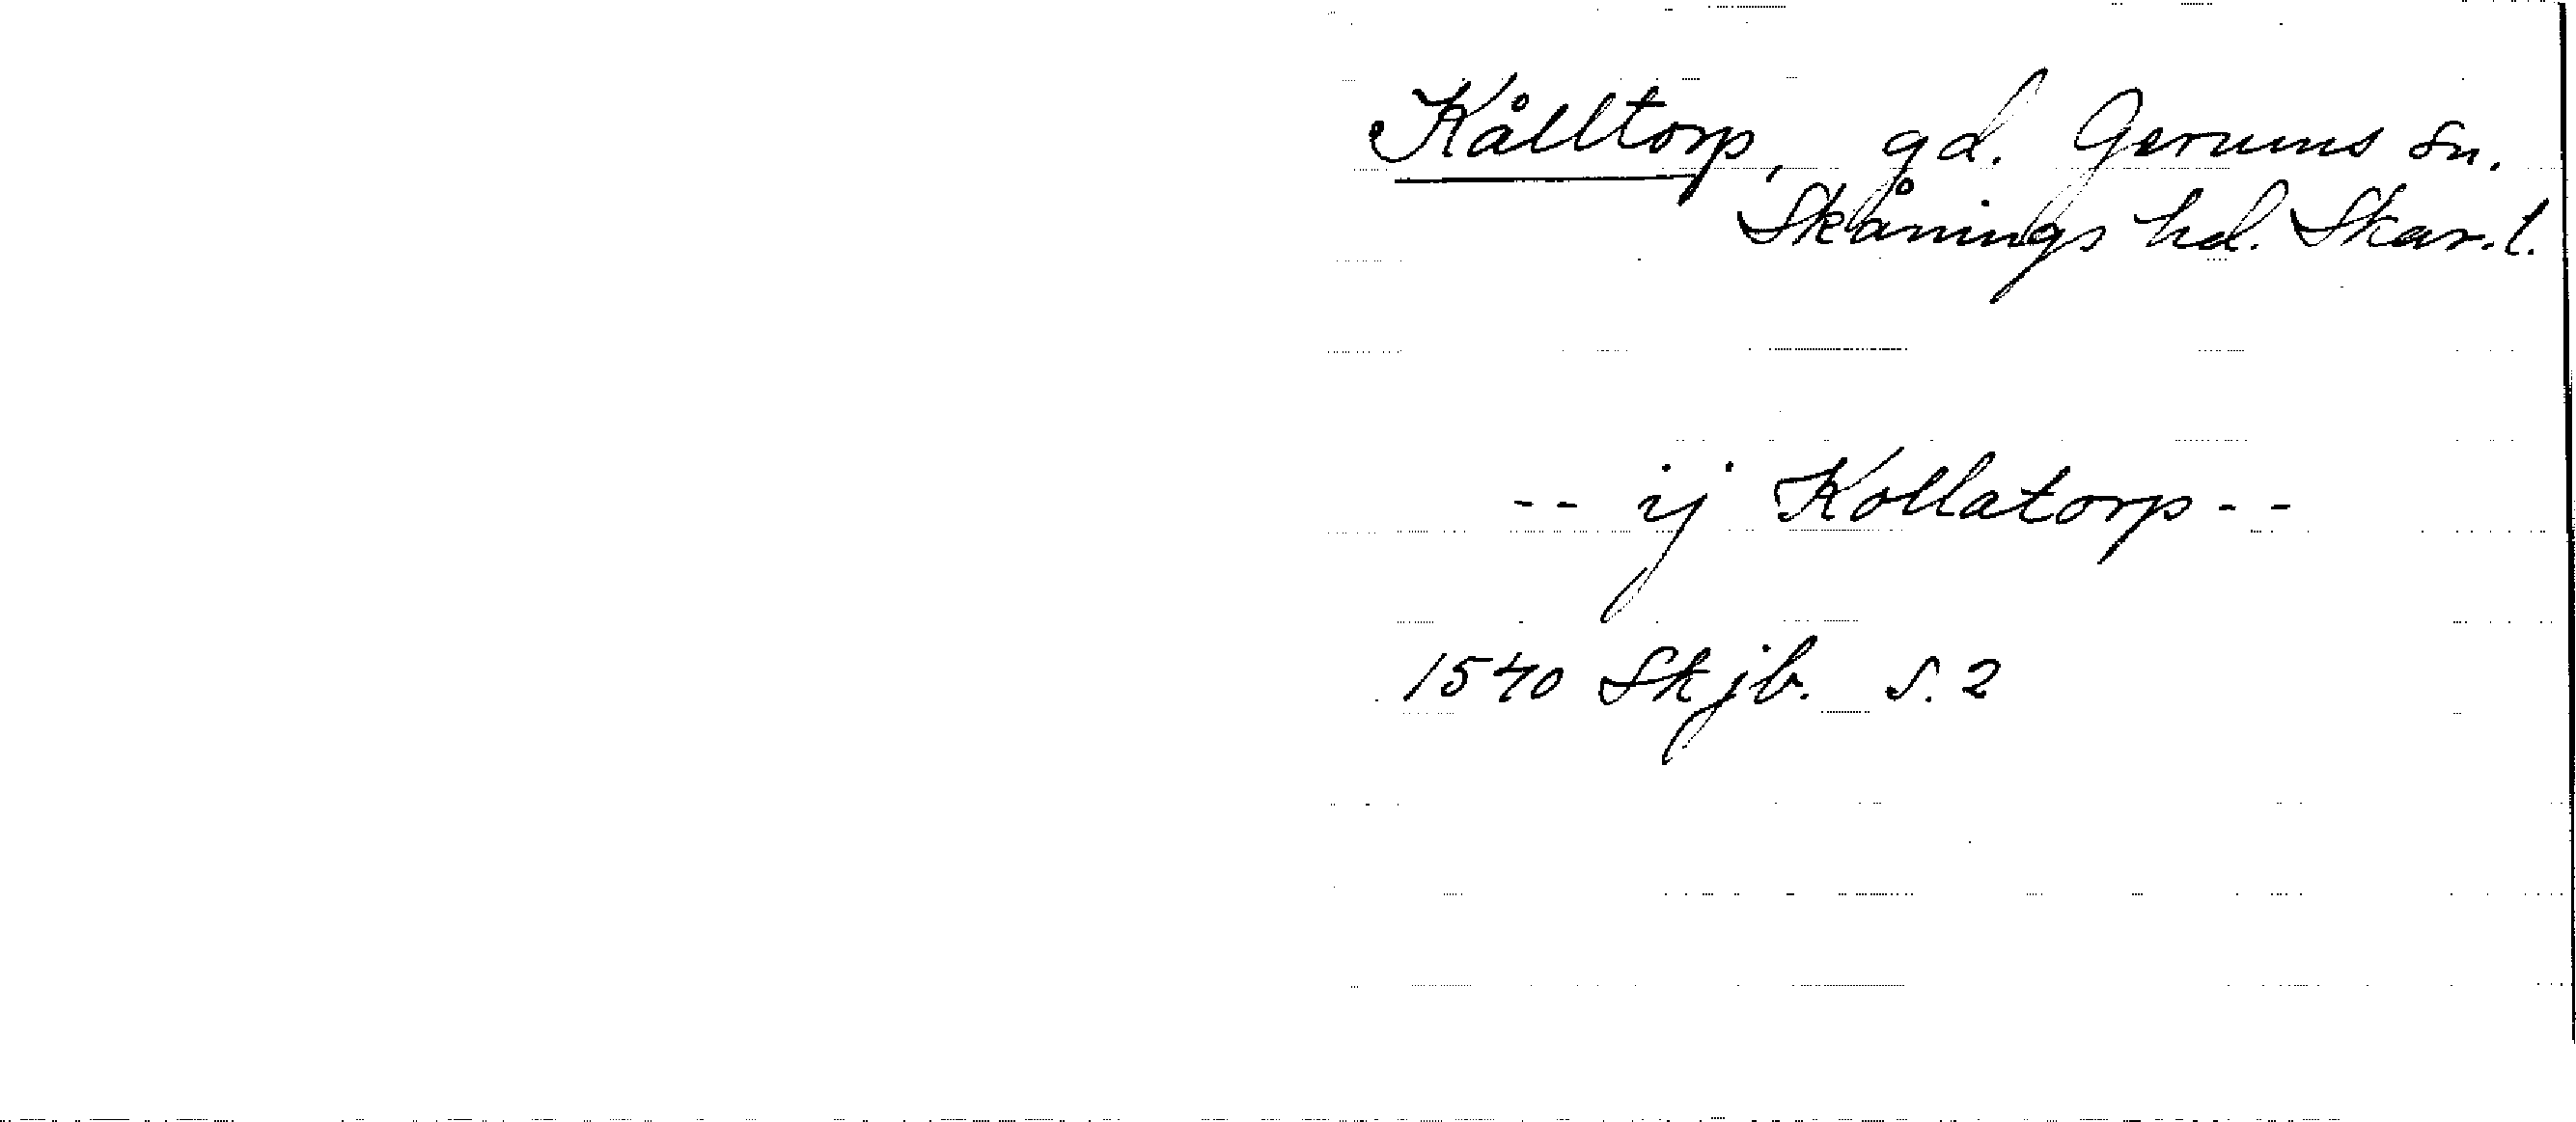 Kålltorp, gd. Gerums sn.
Skånings hd. Skar. l.
-- ij Kollatorp --
1540 Skjb. s. 2